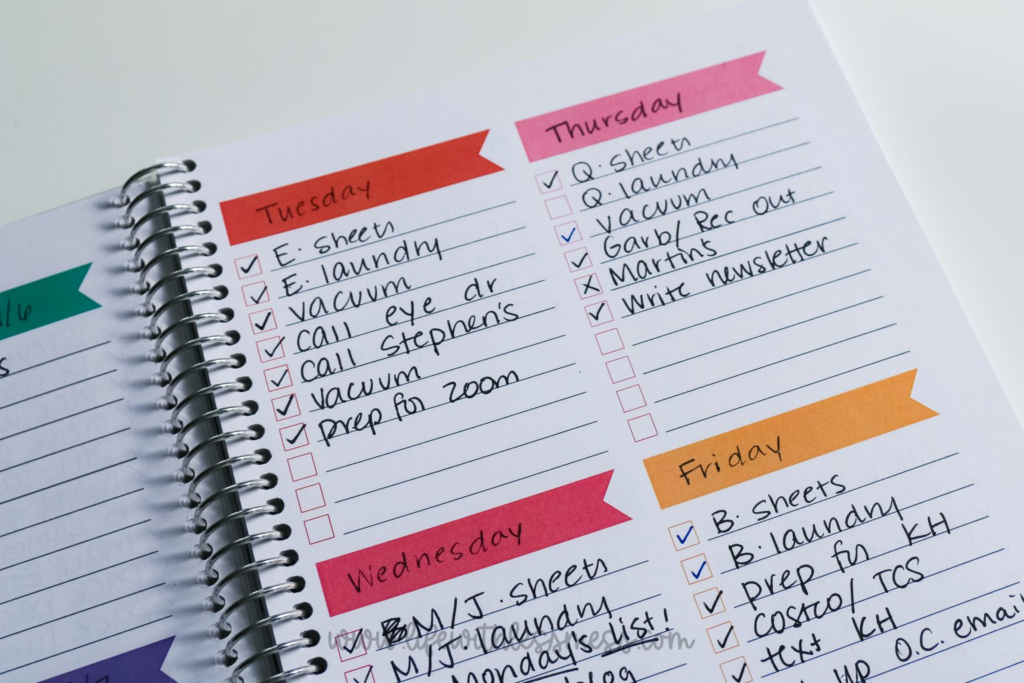 Tuesday
E. sheets
E. laundry
vacuum
call eye dr
call Stephen's
vacuum
prep for zoom
Wednesday
M/J. sheets
M/J. laundry
Monday's list!
blog
Thursday
Q. sheets
Q. laundry
vacuum
Garb/Rec out
Martin's
write newsletter
Friday
B. sheets
B. laundry
prep for KH
costco/TCS
text KH
up O.C. email
/6
s